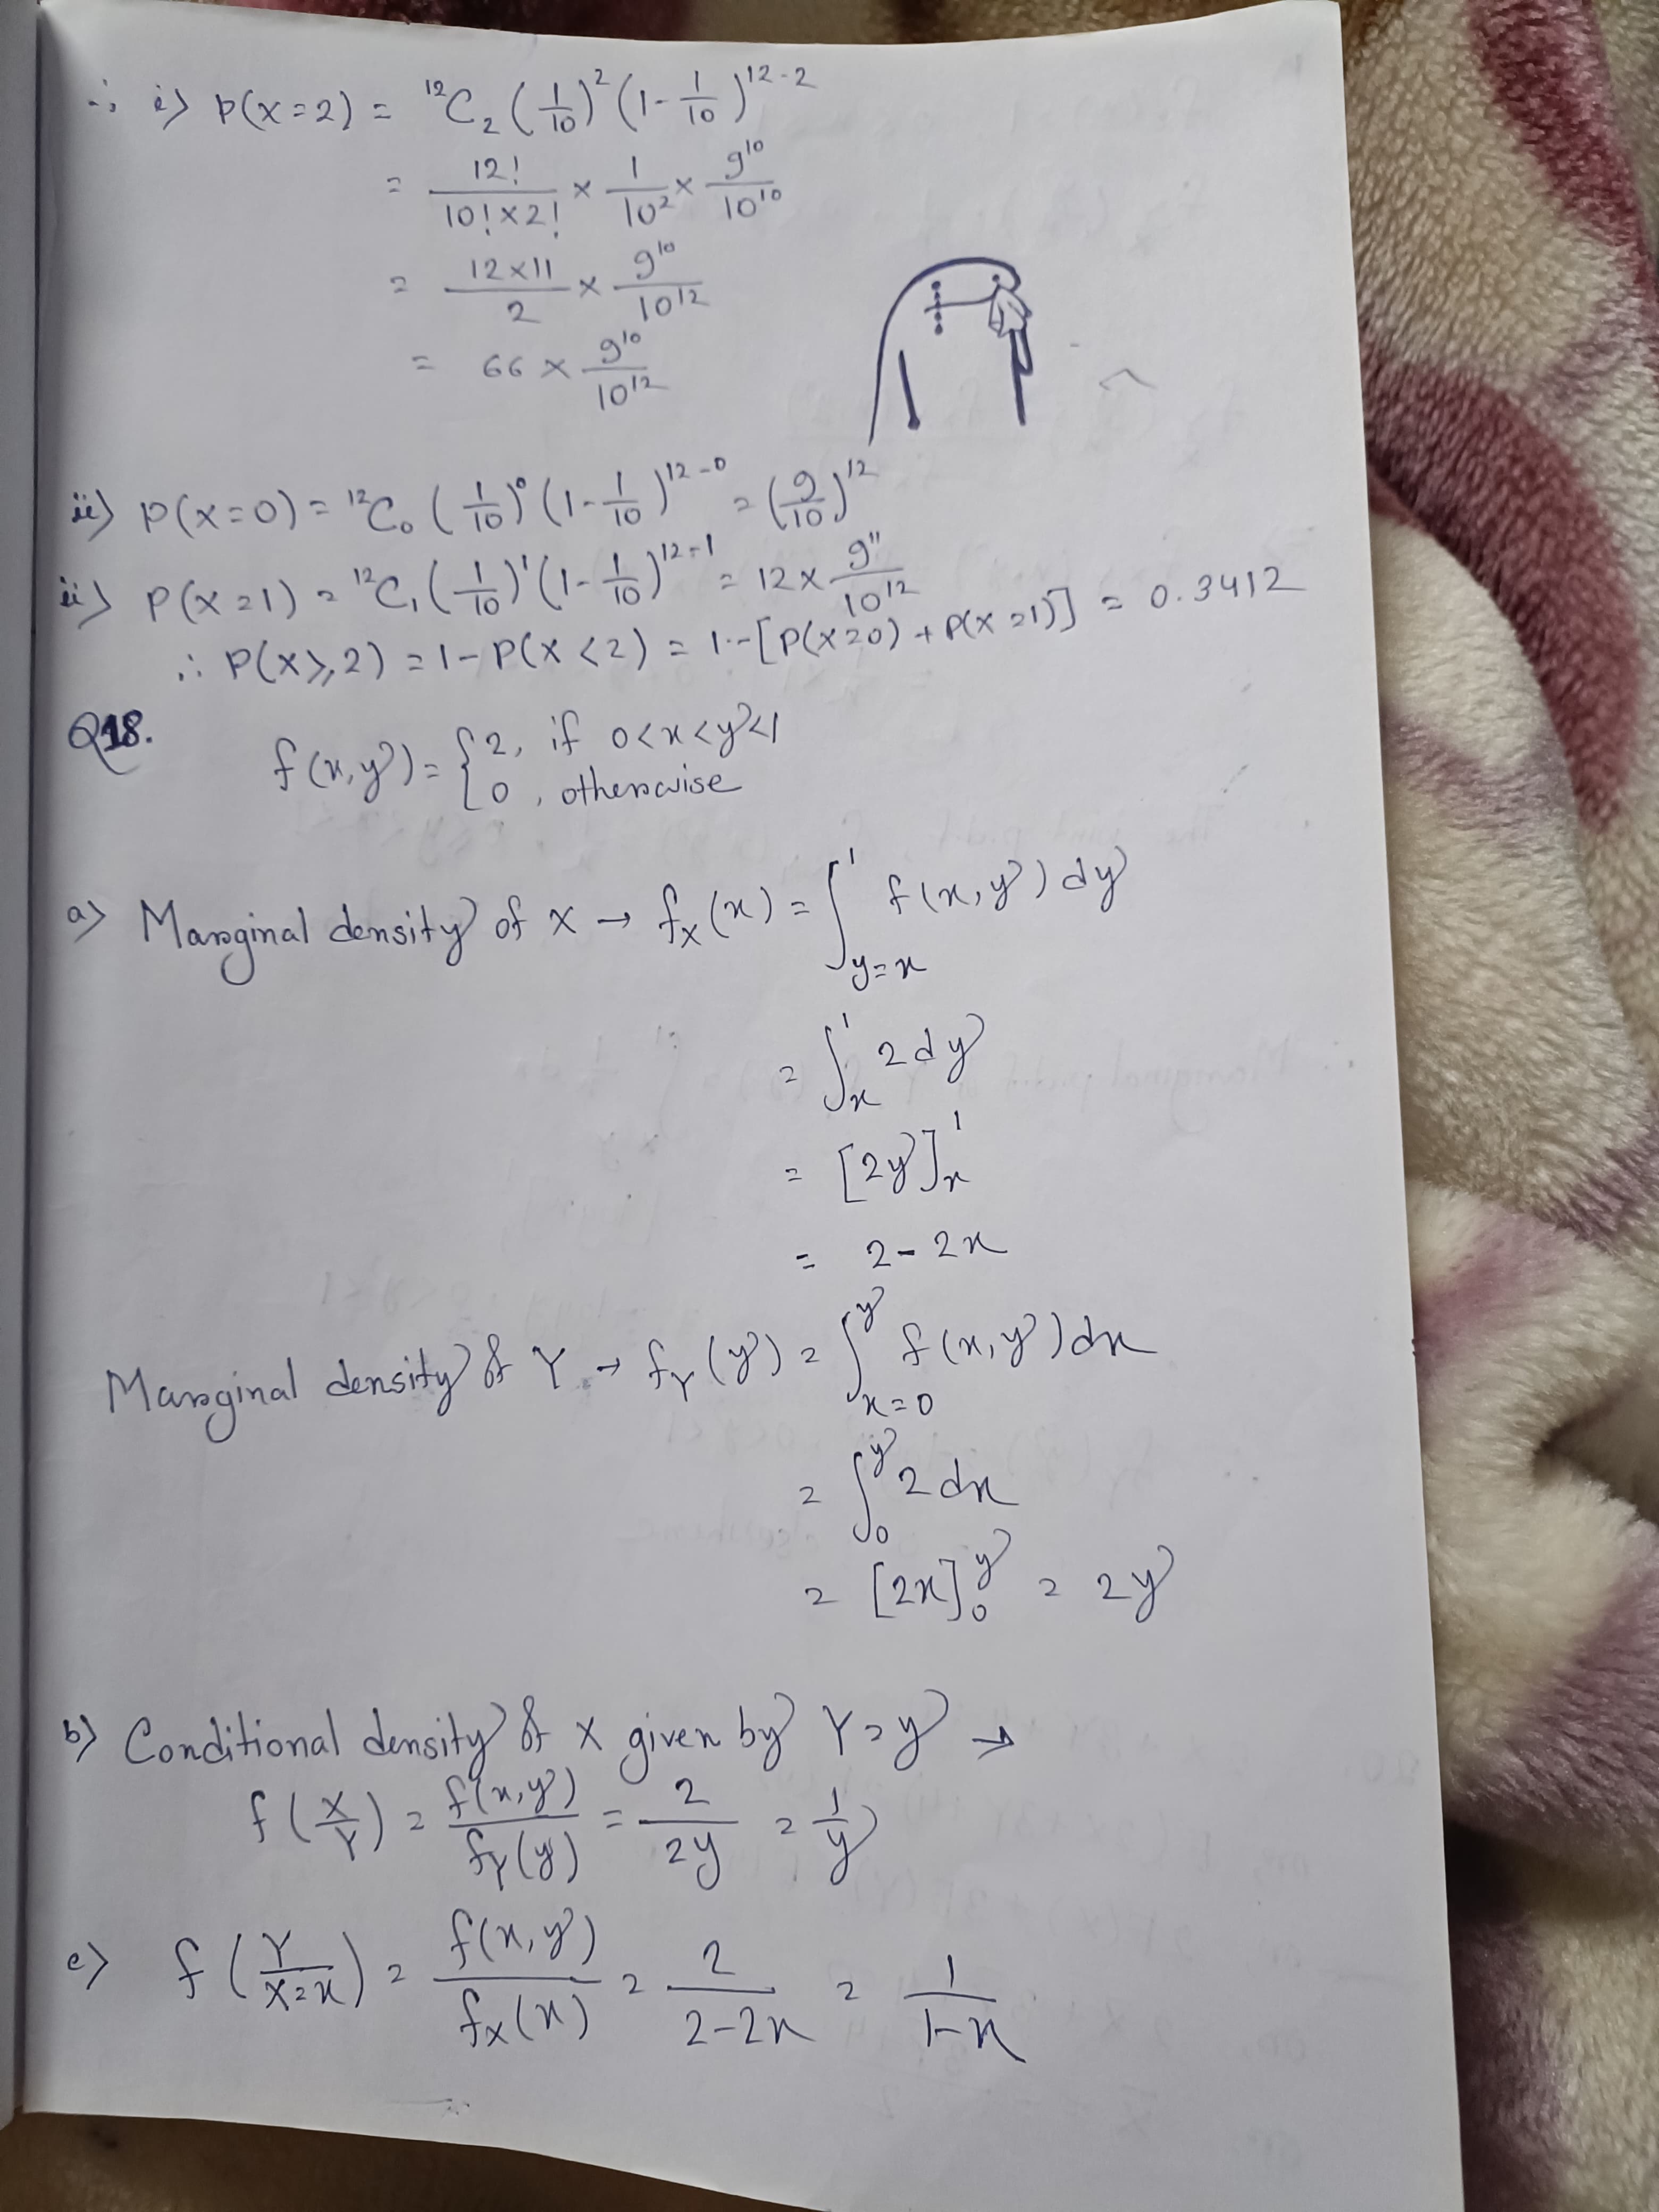 ∴ i) P(X=2) = ¹²C₂ (1/10)² (1-1/10)¹²⁻²
= 12!/(10!×2!) × 1/10² × 9¹⁰/10¹⁰
= (12×11)/2 × 9¹⁰/10¹²
= 66 × 9¹⁰/10¹²
ii) P(X=0) = ¹²C₀ (1/10)⁰ (1-1/10)¹²⁻⁰ = (9/10)¹²
ii) P(X=1) = ¹²C₁ (1/10)¹ (1-1/10)¹²⁻¹ = 12 × 9¹¹/10¹²
∴ P(X⩾2) = 1-P(X<2) = 1-[P(X=0)+P(X=1)] = 0.3412
Q18.
f(x,y) = {2, if 0<x<y<1
0, otherwise
a) Marginal density of X → f_X(x) = ∫_{y=x}^{1} f(x,y) dy
= ∫_{x}^{1} 2dy
= [2y]_{x}^{1}
= 2-2x
Marginal density of Y → f_Y(y) = ∫_{x=0}^{y} f(x,y)dx
= ∫_{0}^{y} 2dx
= [2x]_{0}^{y} = 2y
b) Conditional density of X given by Y=y →
f(X/Y) = f(x,y)/f_Y(y) = 2/2y = 1/y
c) f(Y/X=x) = f(x,y)/f_X(x) = 2/(2-2x) = 1/(1-x)